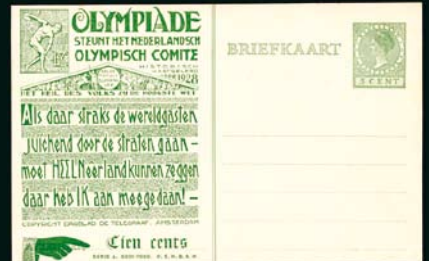 OLYMPIADE
STEUNT HET NEDERLANDSCH
OLYMPISCH COMITE
HISTORISCH
1928
HET HEIL DES VOLKS ZIJ DE HOOGSTE WET
Als daar straks de wereldgasten
juichend door de straten gaan –
moet HEEL Neerland kunnen zeggen
daar heb IK aan meegedaan! –
COPYRIGHT DAGBLAD DE TELEGRAAF, AMSTERDAM
Tien cents
BRIEFKAART
5 CENT